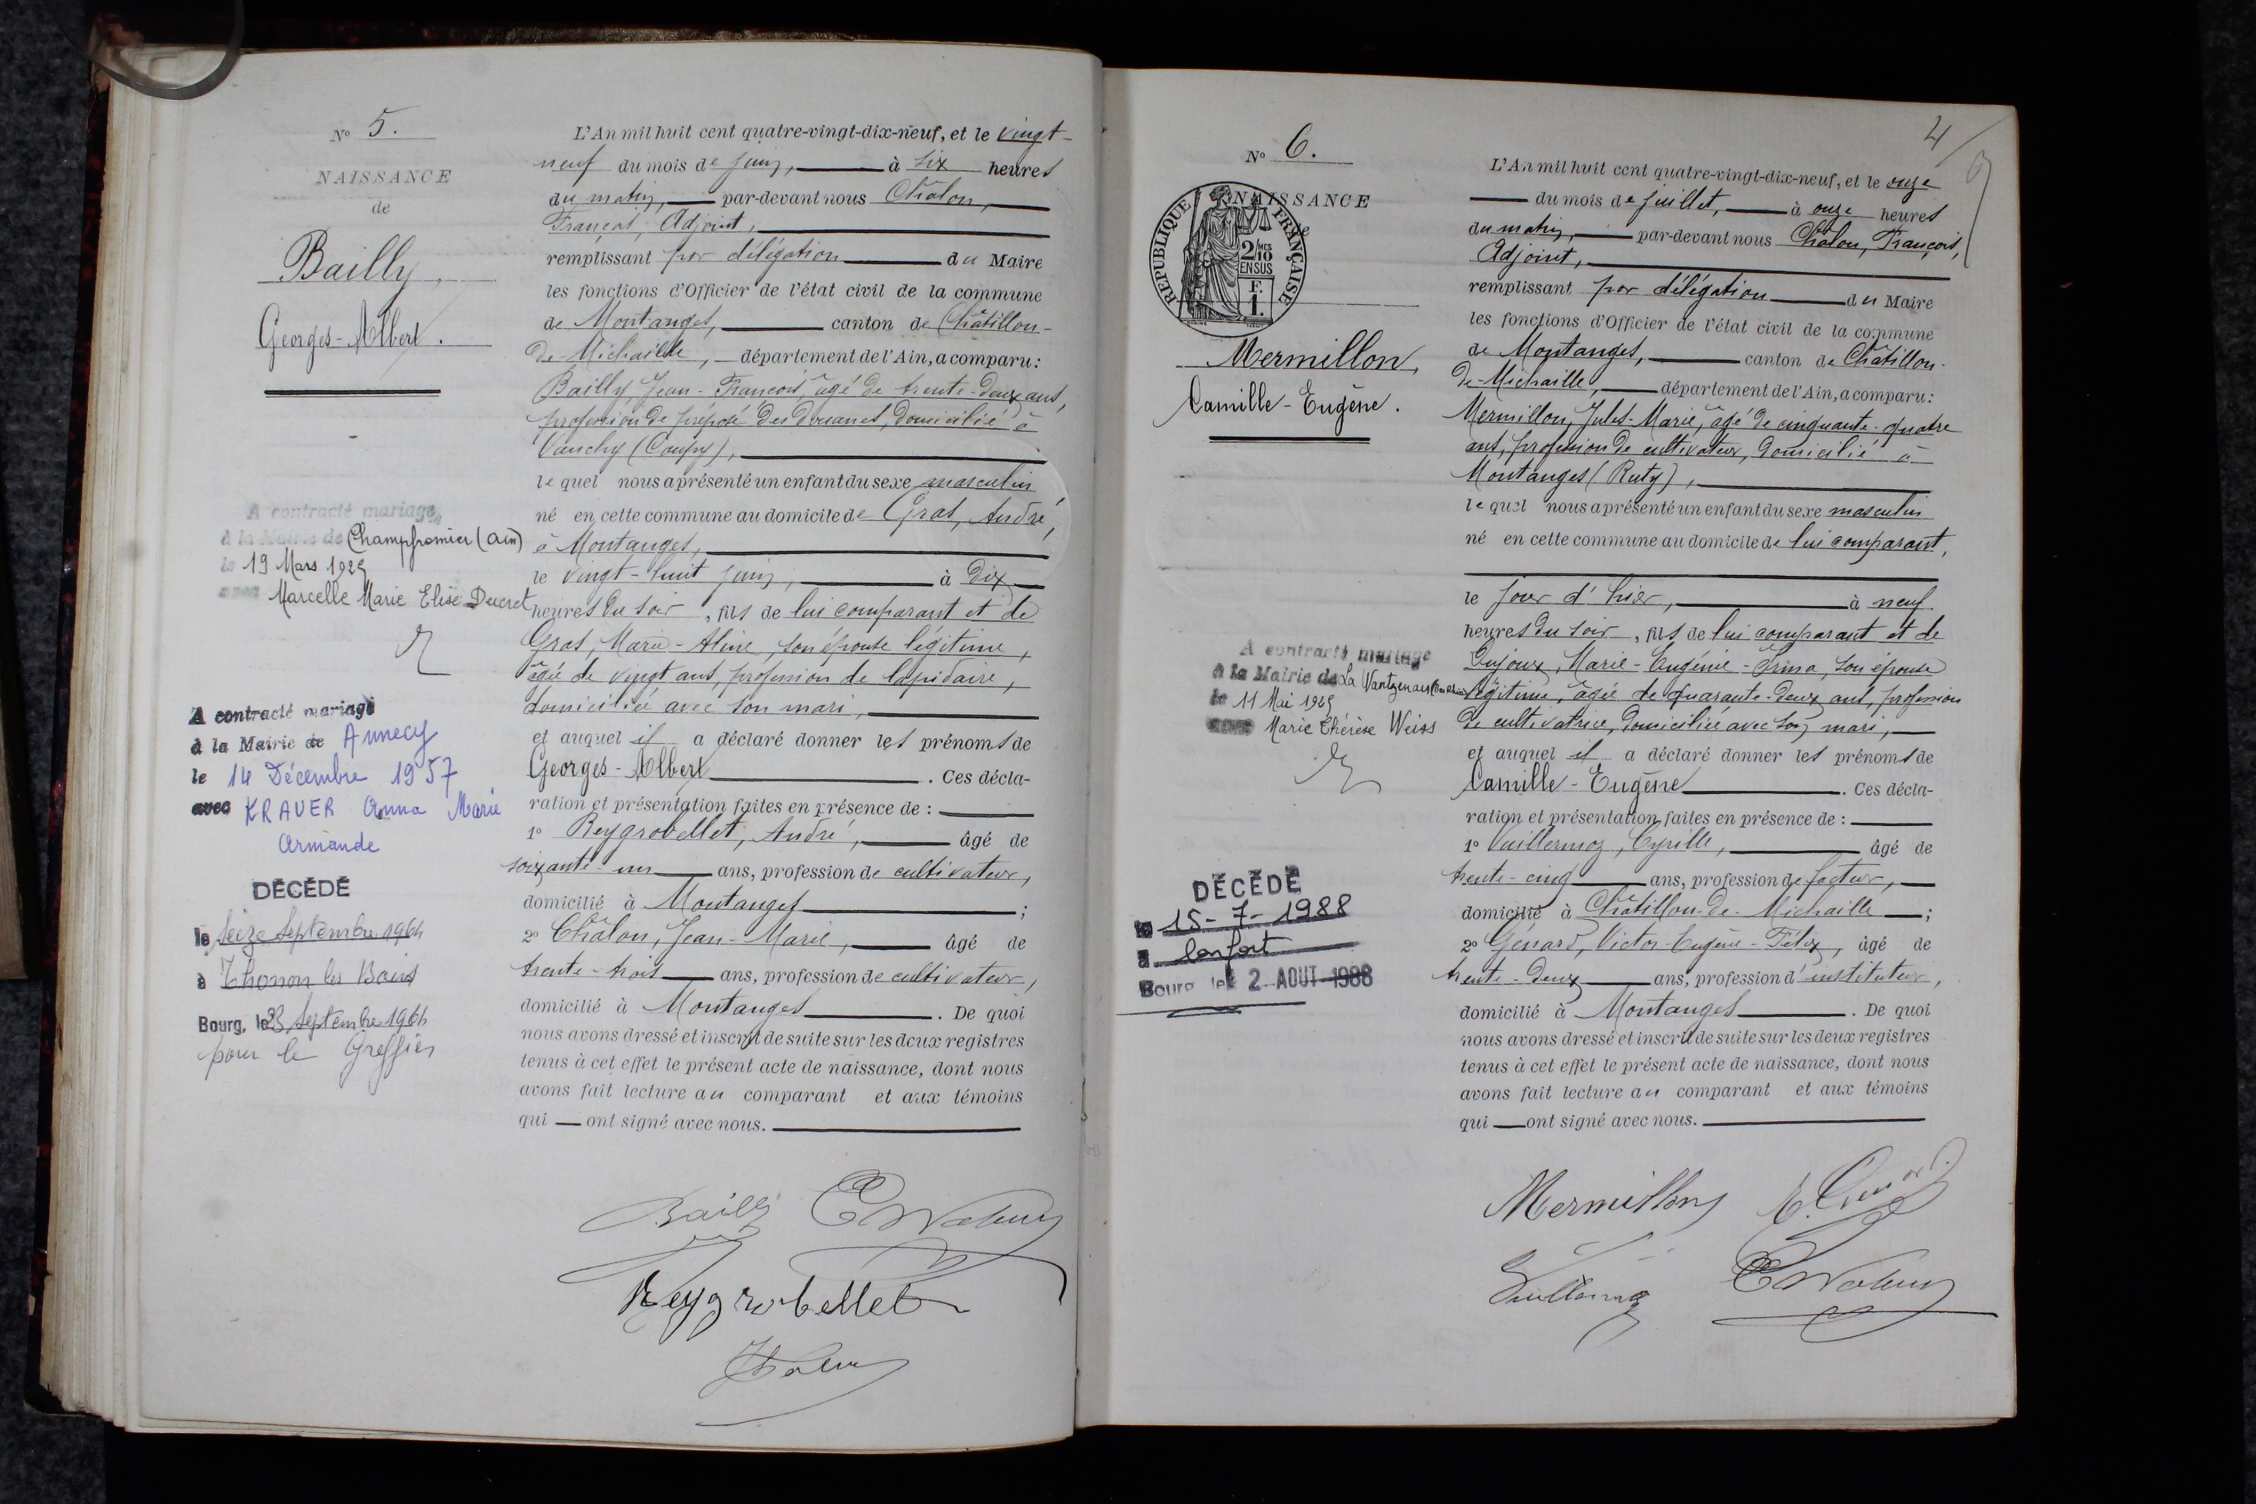 N° 5.
NAISSANCE
de
Bailly,
Georges-Albert.
A contracté mariage
à la Mairie de Champfromier (Ain)
le 19 Mars 1925
avec Marcelle Marie Elise Ducret
A contracté mariage
à la Mairie de Annecy
le 14 Décembre 1957
avec KRAUER Anna Marie
Armande
DÉCÉDÉ
le Seize Septembre 1964
à Thonon les Bains
Bourg, le 23 Septembre 1964
pour le Greffier
L'An mil huit cent quatre-vingt-dix-neuf, et le vingt-
neuf du mois de juin, à six heures
du matin, par-devant nous Châlon,
François, Adjoint,
remplissant par délégation du Maire
les fonctions d'Officier de l'état civil de la commune
de Montanges, canton de Châtillon-
de-Michaille, département de l'Ain, a comparu:
Bailly, Jean-François, âgé de trente-deux ans,
profession de préposé des Douanes, domicilié à
Vanchy (Coupy),
le quel nous a présenté un enfant du sexe masculin
né en cette commune au domicile de Gras, André,
à Montanges,
le vingt-huit juin, à dix
heures du soir, fils de lui comparant et de
Gras, Marie-Aline, son épouse légitime,
âgée de vingt ans, profession de lapidaire,
domiciliée avec son mari,
et auquel il a déclaré donner les prénoms de
Georges-Albert. Ces décla-
ration et présentation faites en présence de :
1° Reygrobellet, André, âgé de
soixante-un ans, profession de cultivateur,
domicilié à Montanges;
2° Châlon, Jean-Marie, âgé de
trente-trois ans, profession de cultivateur,
domicilié à Montanges. De quoi
nous avons dressé et inscrit de suite sur les deux registres
tenus à cet effet le présent acte de naissance, dont nous
avons fait lecture au comparant et aux témoins
qui ont signé avec nous.
Bailly
Reygrobellet
4
N° 6.
NAISSANCE
de
RÉPUBLIQUE FRANÇAISE
2/10 MES
EN SUS
F.
1.
Mermillon,
Camille-Eugène.
A contracté mariage
à la Mairie de La Wantzenau (Bas Rhin)
le 11 Mai 1925
avec Marie Thérèse Weiss
DÉCÉDÉ
le 15-7-1988
à Confort
Bourg, le 2 AOUT 1988
L'An mil huit cent quatre-vingt-dix-neuf, et le onze
du mois de juillet, à onze heures
du matin, par-devant nous Châlon, François,
Adjoint,
remplissant par délégation du Maire
les fonctions d'Officier de l'état civil de la commune
de Montanges, canton de Châtillon-
de-Michaille, département de l'Ain, a comparu:
Mermillon, Jules-Marie, âgé de cinquante-quatre
ans, profession de cultivateur, domicilié à
Montanges (Ruty),
le quel nous a présenté un enfant du sexe masculin
né en cette commune au domicile de lui comparant,
le jour d'hier, à neuf
heures du soir, fils de lui comparant et de
Dujoux, Marie-Eugénie-Irma, son épouse
légitime, âgée de quarante-deux ans, profession
de cultivatrice, domiciliée avec son mari,
et auquel il a déclaré donner les prénoms de
Camille-Eugène. Ces décla-
ration et présentation faites en présence de :
1° Vuillermoz, Cyrille, âgé de
trente-cinq ans, profession de facteur,
domicilié à Châtillon-de-Michaille;
2° Génard, Victor-Eugène-Félix, âgé de
trente-deux ans, profession d'instituteur,
domicilié à Montanges. De quoi
nous avons dressé et inscrit de suite sur les deux registres
tenus à cet effet le présent acte de naissance, dont nous
avons fait lecture au comparant et aux témoins
qui ont signé avec nous.
Mermillon